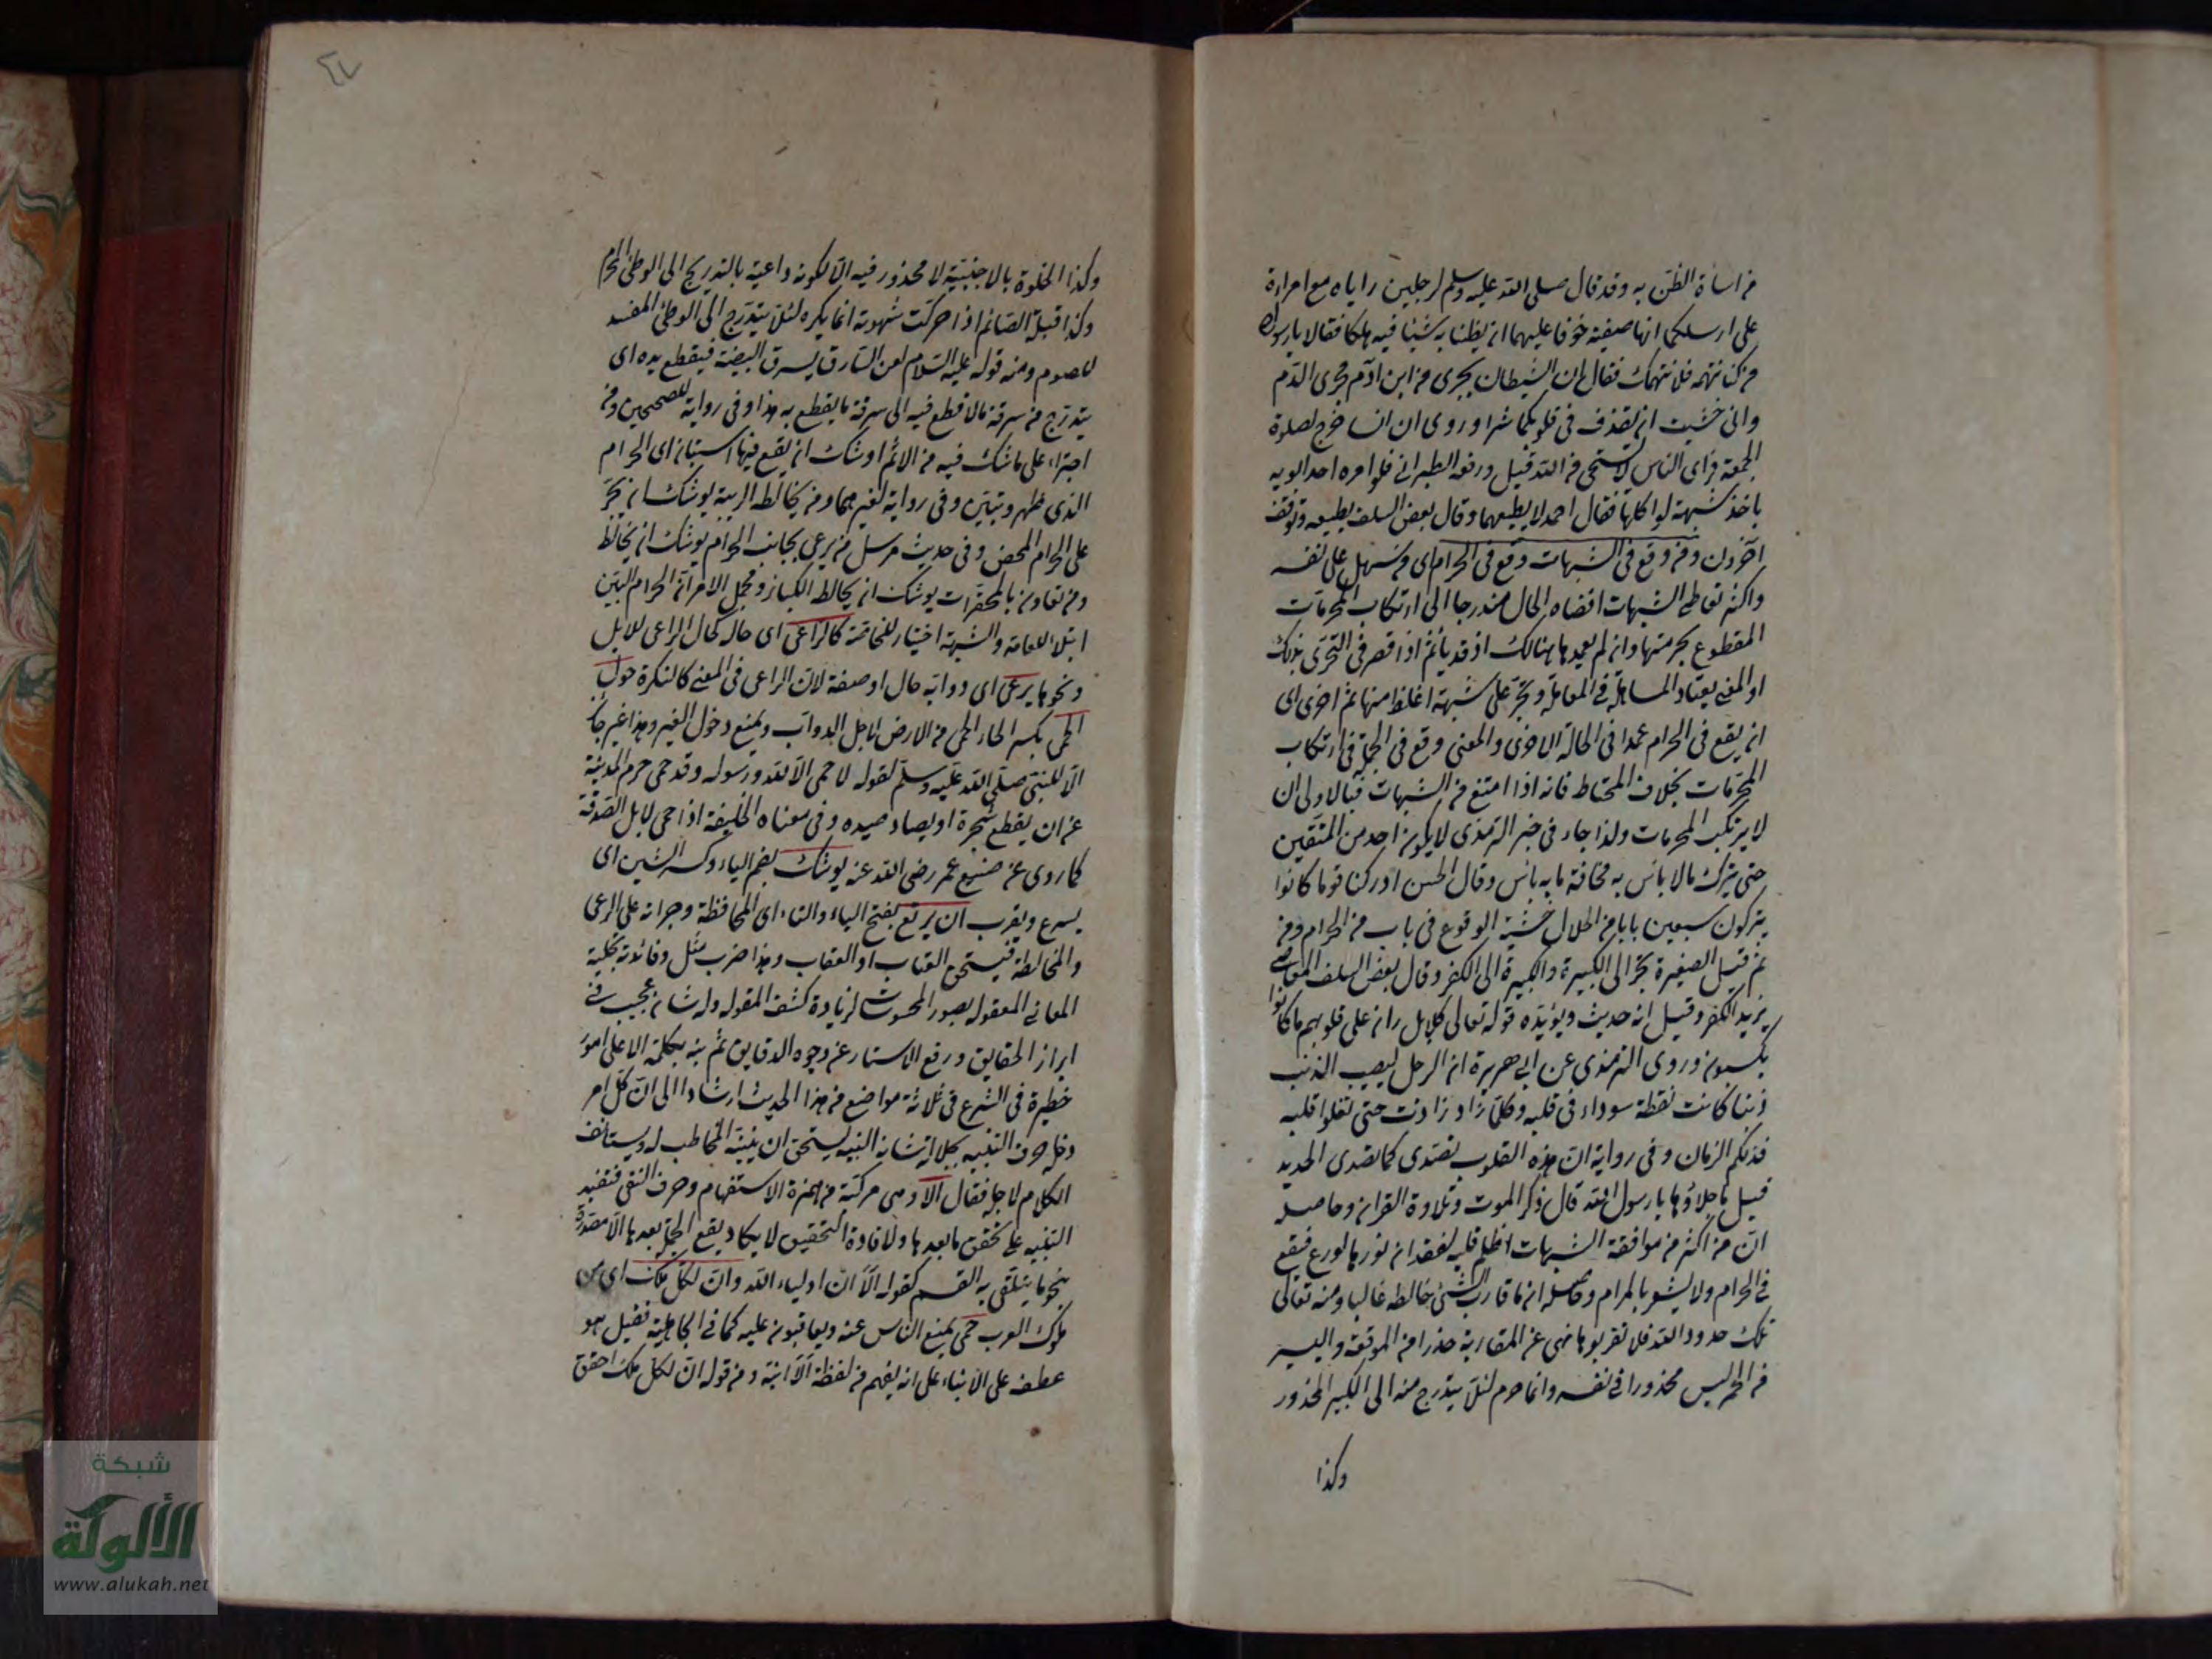 من اساءة الظن به وقد قال صلى الله عليه وسلم لرجلين راياه مع امراءة
على رسلكما انها صفية خوفا عليهما ان يظنا به شيئا فيهلكا فقالا يا رسول الله
من كنا نتهمه فلا نتهمك فقال ان الشيطان يجرى من ابن ادم مجرى الدم
وانى خشيت ان يقذف فى قلوبكما شرا وروى ان انسا خرج لصلوة
الجمعة فراى الناس لا يستحى من الله قيل ورفعه الطبرانى فلو امره احد ابويه
باخذ شبهة او اكلها فقال احمد لا يطيعهما وقال بعض السلف يطيعه وتوقف
آخرون ومن وقع فى الشبهات وقع فى الحرام اى من سهل على نفسه
واكثر تعاطى الشبهات افضاه الحال متدرجا الى ارتكاب المحرمات
المقطوع بحرمتها وان لم يعمدها هنالك اذ قد يأثم اذا قصر فى التحرى بذلك
او المعنى يعتاد المساهلة فى المعاملة ويجر على شبهة اغلظ منها ثم اخرى اى
ان يقع فى الحرام عمدا فى الحالة الاخرى والمعنى وقع فى الجملة فى ارتكاب
المحرمات بخلاف المحتاط فانه اذا امتنع من الشبهات فبالاولى ان
لا يرتكب المحرمات ولذا جاء فى خبر الترمذى لا يكون احد من المتقين
حتى يترك ما لا بأس به مخافة ما به بأس وقال الحسن ادركنا قوما كانوا
يتركون سبعين بابا من الحلال خشية الوقوع فى باب من الحرام ومن
ثم قيل الصغيرة تجر الى الكبيرة والكبيرة الى الكفر وقال بعض السلف المعاصى
بريد الكفر وقيل انه حديث ويؤيده قوله تعالى كلا بل ران على قلوبهم ما كانوا
يكسبون وروى الترمذى عن ابى هريرة ان الرجل ليصيب الذنب
ذنبا كانت نقطة سوداء فى قلبه وكلما زاد زادت حتى تعلوا قلبه
فذلكم الران وفى رواية ان هذه القلوب تصدى كما تصدى الحديد
قيل ما جلاؤها يا رسول الله قال ذكر الموت وتلاوة القران وحاصله
ان من اكثر من موافقة الشبهات اظلم قلبه لفقدان نورها لورع فيقع
فى الحرام ولا يشعر بالمرام وحاصله ان ما قارب الشئ خالطه غالبا ومنه تعالى
تلك حدود الله فلا تقربوها نهى عن المقاربة حذرا من الموقعة واليسير
من الخمر ليس محذورا فى نفسه وانما حرم لئلا يتدرج منه الى الكبير المحذور
وكذا
٤٧
وكذا الخلوة بالاجنبية لا محذور فيه الا لكونه داعية بالتدريج الى الوطئ المحرم
وكذا قبلة الصائم اذا حركت شهوته انما يكره لئلا يتدرج الى الوطئ المفسد
للصوم ومنه قوله عليه السلام لعن السارق يسرق البيضة فيقطع يده اى
يتدرج من سرقة ما لا قطع فيه الى سرقة ما يقطع به هذا وفى رواية للصحيحين ومن
اجترا على ما شك فيه من الاثم اوشك ان يقع فيما استبان اى الحرام
الذى ظهر وتبين وفى رواية لغيرهما ومن يخالط الريبة يوشك ان يجر
على الحرام المحض وفى حديث مرسل من يرعى بجانب الحرام يوشك ان يخالط
ومن تهاون بالمحقرات يوشك ان يخالط الكبائر ومجمل الامر ان الحرام البين
ابتلا للعامة والشبهة اختيار للخاصة كالراعى اى حاله كحال الراعى للابل
ونحوها يرعى اى دوابه حال او صفة لان الراعى فى المعنى كالنكرة حول
الحمى بكسر الحاء الحمى من الارض لاجل الدواب ويمنع دخول الغير وهذا غير جائز
الا للنبى صلى الله عليه وسلم لقوله لا حمى الا لله ورسوله وقد حمى حرم المدينة
عن ان يقطع شجره او يصاد صيده وفى معناه الخليفة اذا حمى لابل الصدقة
كما روى عن صنيع عمر رضى الله عنه يوشك بضم الياء وكسر الشين اى
يسرع ويقرب ان يرتع بفتح الياء والتاء اى المحافظة وجرانه على الرعى
والمخالطة فيستحق العتاب او العقاب وهذا ضرب مثل وفائدته تجلية
المعانى المعقولة بصور المحسوسات لزيادة كشف المقولة وله شان عجيب فى
ابراز الحقايق ورفع الاستار عن وجوه الدقايق ثم نبه بكلمة الا على امور
خطيرة فى الشرع فى ثلاثة مواضع من هذا الحديث ارشادا الى ان كل امر
دخله حرف التنبيه بجلالة شانه النبيه يستحق ان يتنبه المخاطب له ويستانف
الكلام لاجله فقال الا وهى مركبة من همزة الاستفهام وحرف النفى فتفيد
التنبيه على تحقق ما بعدها ولافادة التحقيق لا يكاد يقع الجملة بعدها الا مصدرة
بنحو ما يتلقى به القسم كقوله الا ان اولياء الله وان لكل ملك اى من
ملوك العرب حمى يمنع الناس عنه ويعاقبون عليه كما فى الجاهلية فقيل هو
عطف على الانباء على انه يفهم من لفظة الا انبه ومن قوله ان لكل ملك احقق
شبكة
الألوكة
www.alukah.net